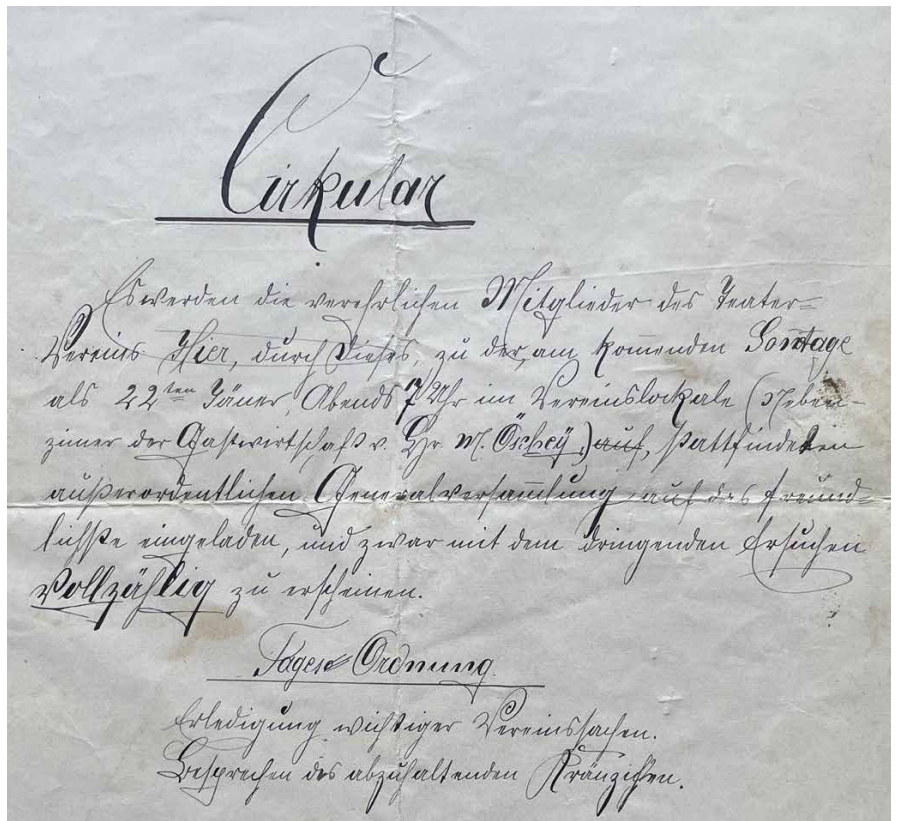 Cirkular
Es werden die verehrlichen Mitglieder des Teater=
Vereins Hier, durch Dieses, zu der, am komenden Sontage
als 22ten Jäner, Abends 7 Uhr im Vereinslokale (Neben-
zimer der Gastwirtschaft v. Hr. M. Öschey) auf, stattfindenden
außerordentlichen Generalversamlung auf das freund=
lichste eingeladen, und zwar mit dem dringenden Ersuchen
Vollzählig zu erscheinen.
Tages= Ordnung.
Erledigung wichtiger Vereinssachen.
Besprechen des abzuhaltenden Kränzchen.